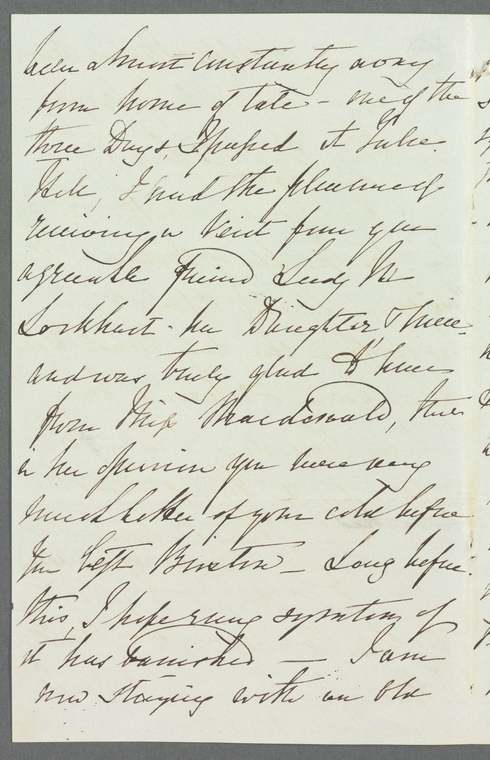 been almost constantly away
from home of late - one of the
three Days, I passed at Tulie
Hill, I had the pleasure of
receiving a Visit from your
agreeable friend Lady M
Lockhart - her Daughter & niece
and was truly glad to hear
from Miss Macdonald, that
in her opinion you were very
much better of your cold before
you left Brixton - Long before
this, I hope every symptom of
it has vanished — I am
now staying with an old